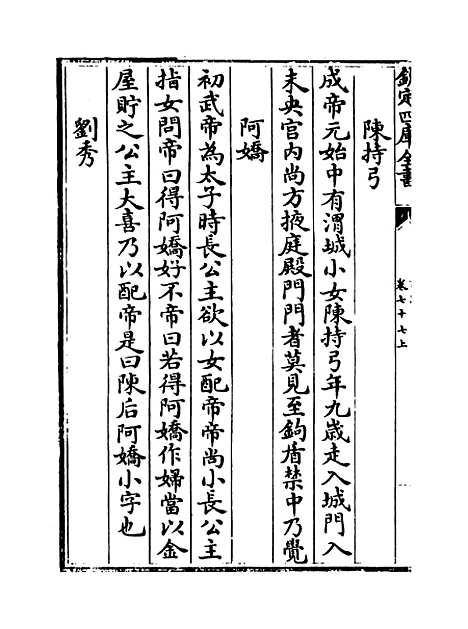 欽定四庫全書
卷七十七上
陳持弓
成帝元始中有渭城小女陳持弓年九歳走入城門入
未央官内尚方掖庭殿門門者莫見至鉤盾禁中乃覺
阿嬌
初武帝為太子時長公主欲以女配帝帝尚小長公主
指女問帝曰得阿嬌好不帝曰若得阿嬌作婦當以金
屋貯之公主大喜乃以配帝是曰陳后阿嬌小字也
劉秀